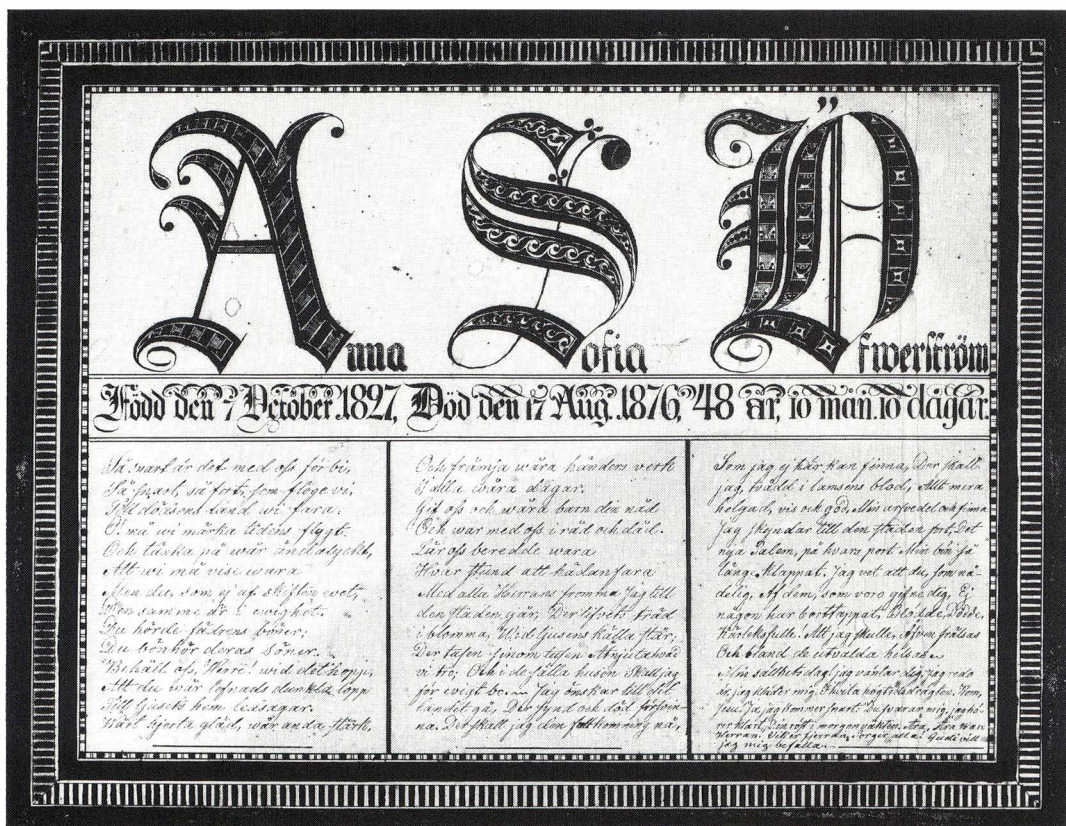 Anna Sofia Öfwerström
Född den 7 October 1827, Död den 17 Aug. 1876, 48 år, 10 mån. 10 dagar.
Så snart är det med oss förbi,
Så snart, så fort, som flöge vi,
Till dödsens land wi fara.
O! må wi märka tidens flygt
Och tänka på wår ändalyckt,
Att wi må vise wara
Men du, som ej af skiften vet,
Den samme är i ewighet.
Du hörde fädrens böner;
Du bönhör deras söner.
Behåll oss, Herre! wid det hopp,
Att du wår lefnads dunkla lopp
Till ljusets hem ledsagar.
Wårt hjerta gläd, wår anda stärk,
Och främja wåra händers verk
I alla wåra dagar.
Gif oss och wåra barn den nåd
Och war med oss i råd och dåd.
Lär oss beredde wara
Hwar stund att hädanfara
Med alla Herrans fromma Jag till
den staden går, Der lifsens träd
i blomma, Wid ljusens källa står;
Der tusen sinom tusen
vi tro; Och i de sälla husen Skall jag
för evigt bo. Jag önskar till det
landet gå, Der synd och död försvin-
na. Det skall jag den fullkomning nå,
Som jag ej här kan finna, Der skall
jag, twådd i lamsens blod, Allt mera
helgad, vis och god, Min arfvedel och finna
Jag skyndar till den staden fort, Det
nya Salem, på hvars port Min bön så
länge klappat. Jag vet att du, som nå-
delig, Af dem, som voro gifne dig, Ej
någon har borttappat, Blödde, Dödde,
Kärleksfulle. Att jag skulle, Äfven frälsas
Och bland de utvalda helsas
Min sällhets dag! jag väntar dig, jag redo
är, jag skiljer mig, Kom,
Jesu! Ja, jag kommer snart. Du svarar mig, jag hö-
jag mig befalla.